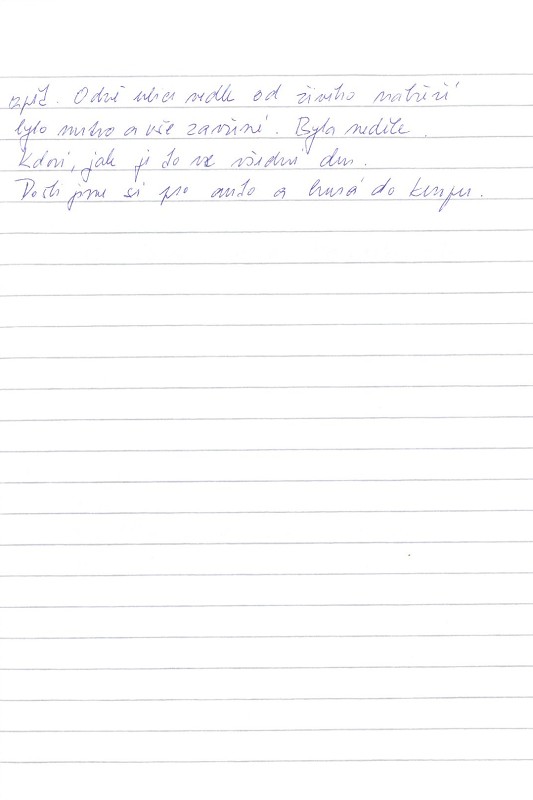 zpět. O dvě ulice vedle od živého nábřeží
bylo mrtvo a vše zavřené. Byla neděle.
Kdoví, jak je to ve všední den.
Došli jsme si pro auto a hurá do kempu.